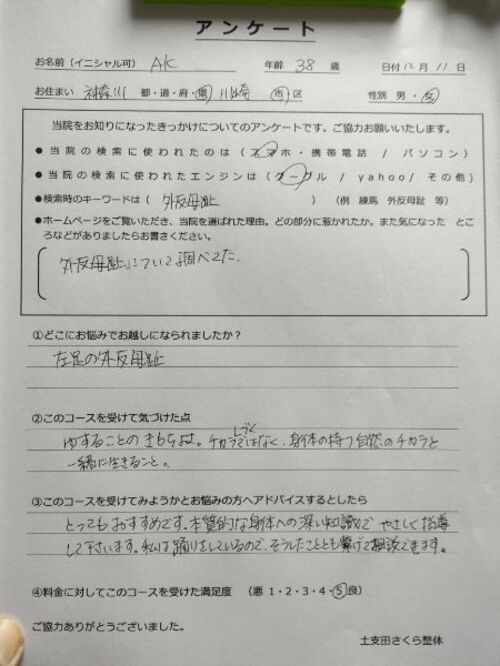 アンケート
お名前（イニシャル可） AK 年齢 38 歳 日付 12月 11日
お住まい 神奈川 都・道・府・県 川崎 市 区 性別 男・女
当院をお知りになったきっかけについてのアンケートです。ご協力お願いいたします。
●当院の検索に使われたのは（スマホ・携帯電話 / パソコン）
●当院の検索に使われたエンジンは（グーグル / yahoo/ その他）
●検索時のキーワードは（ 外反母趾 ）（例 練馬 外反母趾 等）
●ホームページをご覧いただき、当院を選ばれた理由。どの部分に惹かれたか。また気になった とこ
ろなどがありましたらお書きください。
外反母趾について調べてた。
①どこにお悩みでお越しになられましたか？
左足の外反母趾
②このコースを受けて気づけた点
ゆすることのきもちよさ。チカラづくではなく、身体の持つ自然のチカラと
一緒に生きること。
③このコースを受けてみようかとお悩みの方へアドバイスするとしたら
とってもおすすめです。本質的な身体への深い知識で やさしく指導
して下さいます。私は踊りをしているので、そうしたことも繋げて相談できます。
④料金に対してこのコースを受けた満足度 （悪 1・2・3・4・5 良）
ご協力ありがとうございました。
土支田さくら整体